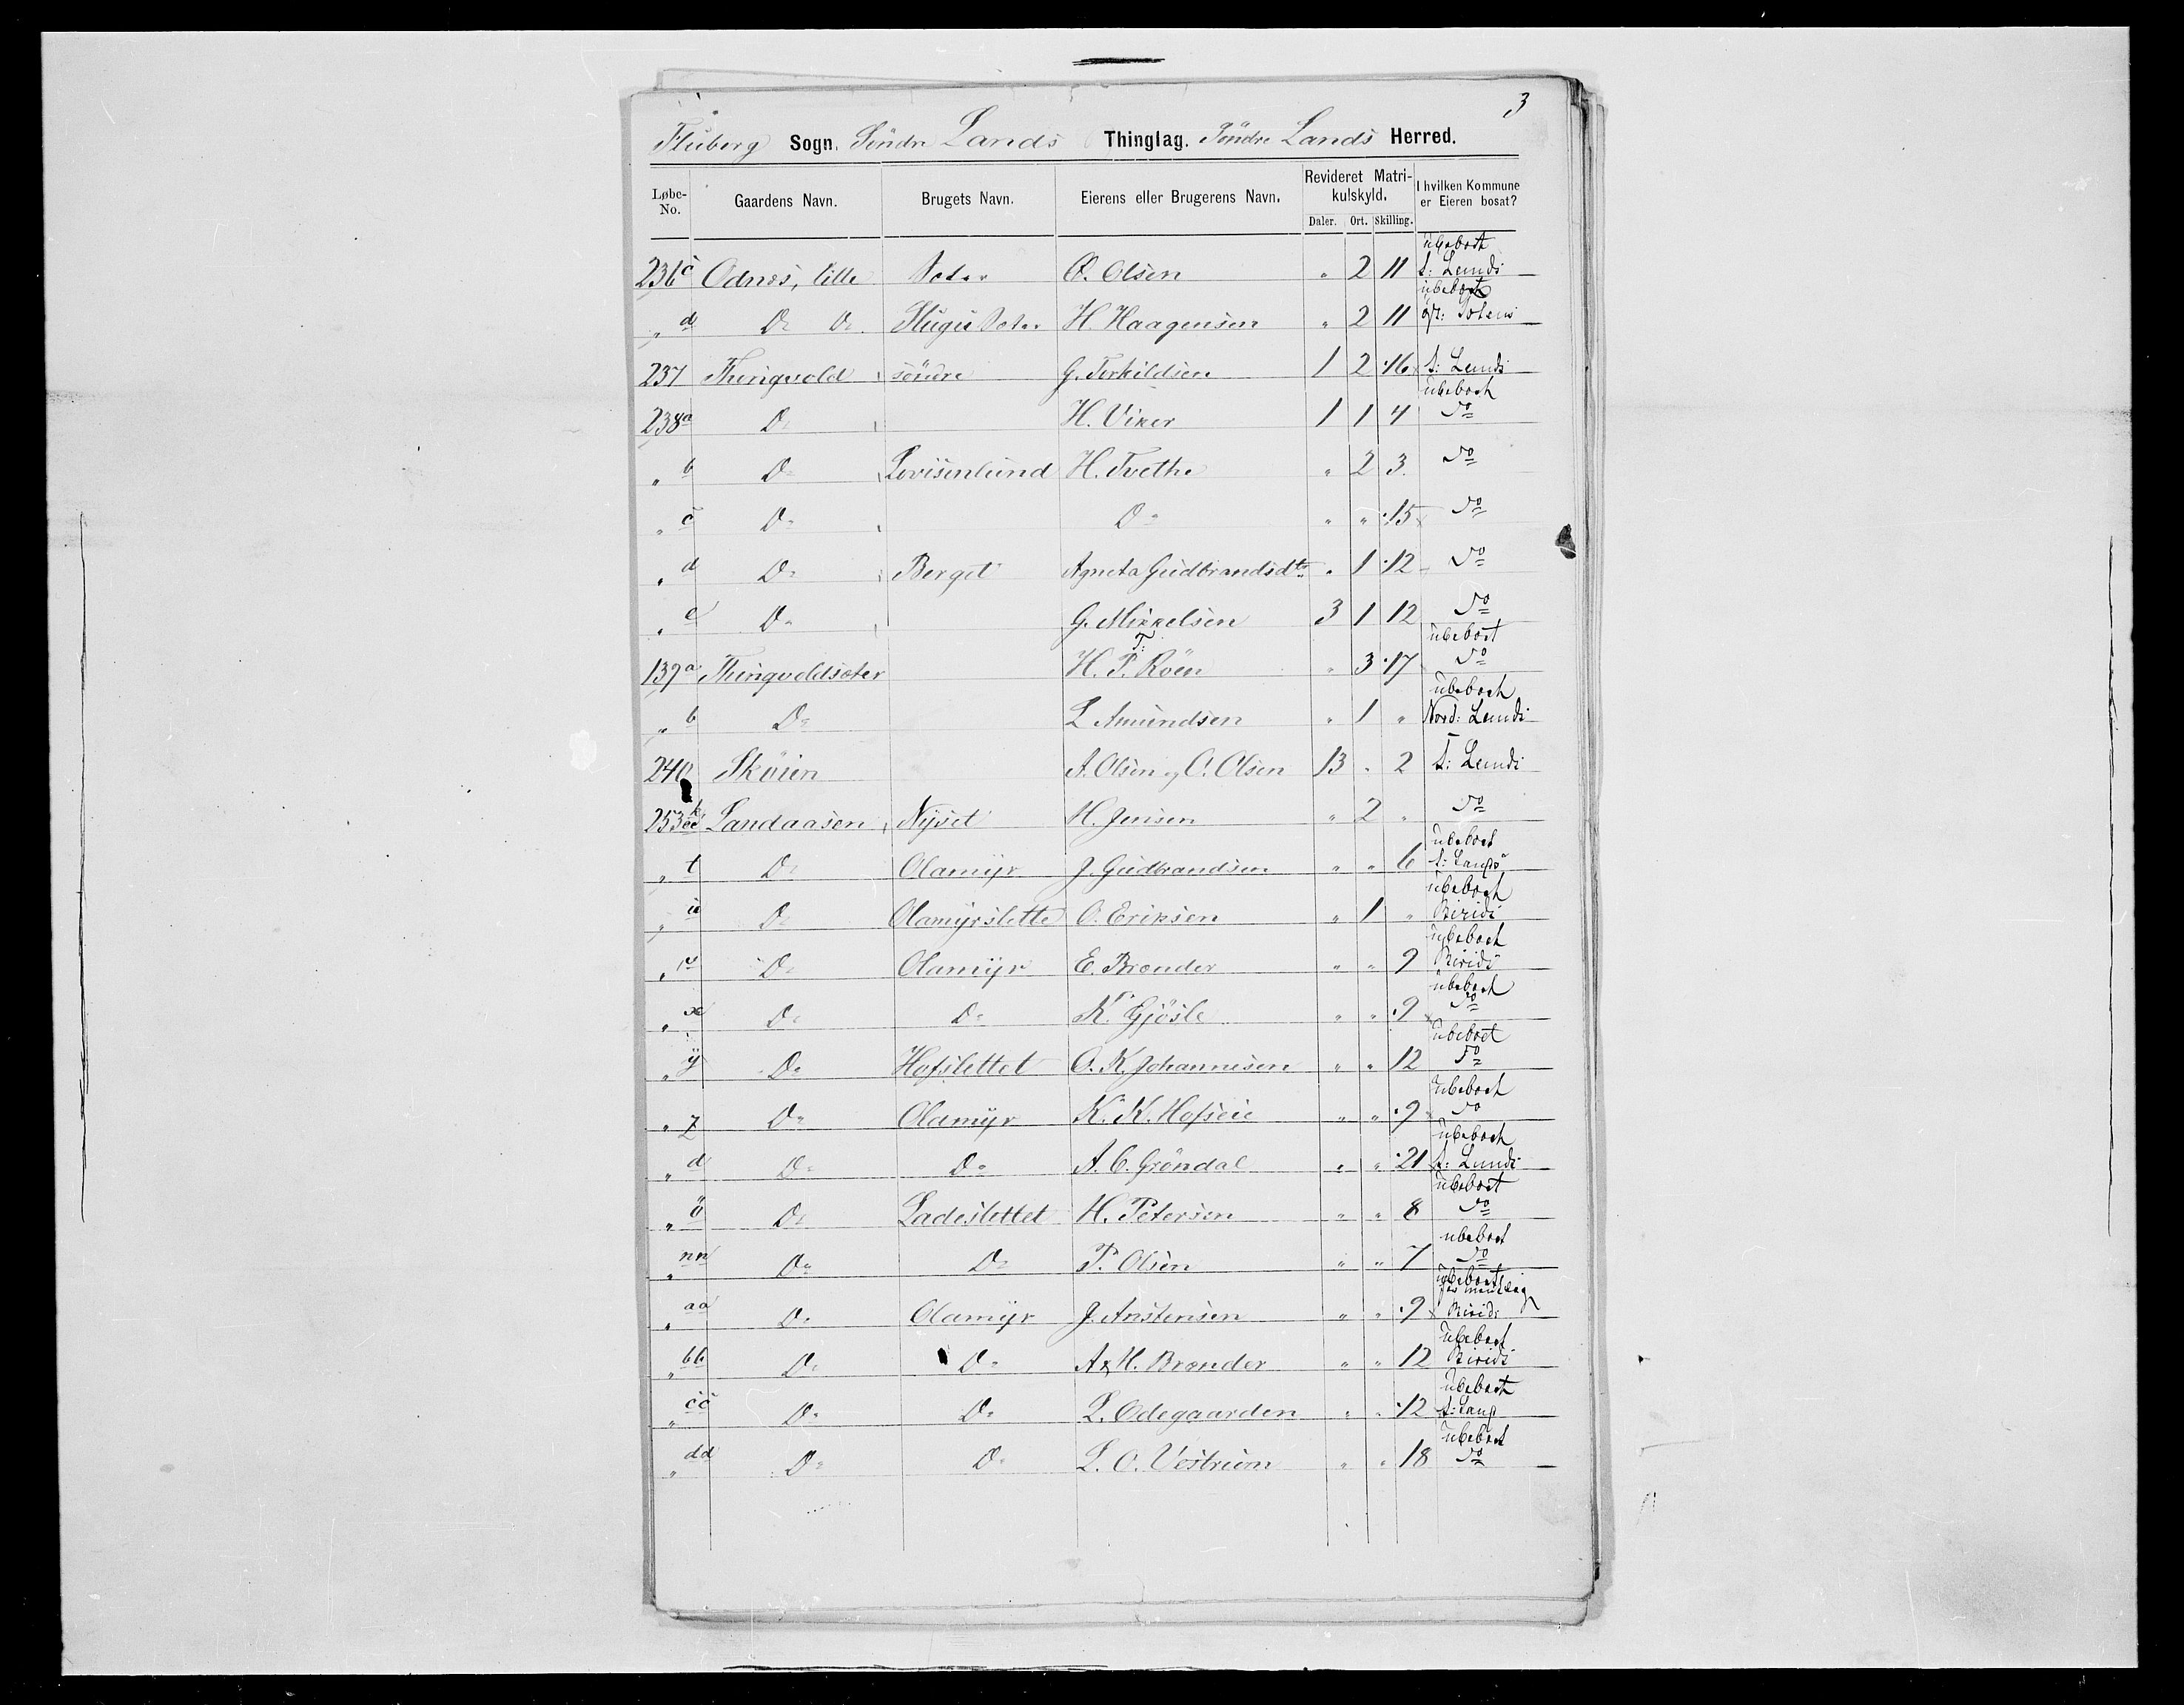 3
Fluberg Sogn. Söndre Lands Thinglag. Söndre Lands Herred.
Løbe-No. Gaardens Navn. Brugets Navn. Eierens eller Brugerens Navn. Revideret Matrikulskyld. Daler. Ort. Skilling. I hvilken Kommune er Eieren bosat?
236c Odnes, lille Seter O. Olsen " 2 11 ubeboet S: Lands
" d Do Do. H. Haagensen " 2 11 ubeboet Totens
237 Thingvold söndre G. Torkildsen 1 2 16 S: Lands
238a Do H. Viker 1 1 4 ubeboet Do
" b Do Lovisenlund H. Tvethe " 2 3 Do
" c Do Do " " 15 Do
" d Do Berget Agneta Gudbrandsdtr " 1 12 Do
" e Do G. Mikkelsen 3 1 12 Do
139a Thingvoldseter H. T. Röen " 3 17 ubeboet Do
" b Do L Amundsen " 1 " ubeboet Nord: Lands
240 Skoien A. Olsen og O. Olsen 13 " 2 S: Lands
253 Landaasen, Nyset H. Jensen " 2 " Do
" t Do Olamyr J. Gudbrandsen " " 6 ubeboet S: Lands
" u Do Olamyrslette O. Eriksen " 1 " ubeboet Birids
" v Do Olamyr E. Brænder " " 9 ubeboet Birids
" x Do Do K. Gjösle " " 9 ubeboet Do
" y Do Hofslettet O. K. Johannesen " " 12 ubeboet Do
" z Do Olamyr K. K. Hofseie " " 9 ubeboet Do
" Do Do A. C. Gröndal " " 21 ubeboet S: Lands
" ö Do Ladeslettet H. Petersen " " 8 ubeboet Do
" nn Do Do P. Olsen " " 7 ubeboet Do
" aa Do Olamyr J. Anstensen " " 9 ubeboet Birids
" bb Do Do A & H. Brænder " " 12 ubeboet Birids
" cc Do Do L. Odegaarden " " 12 ubeboet S: Land
" dd Do Do L. O. Vestrum " " 18 ubeboet Do